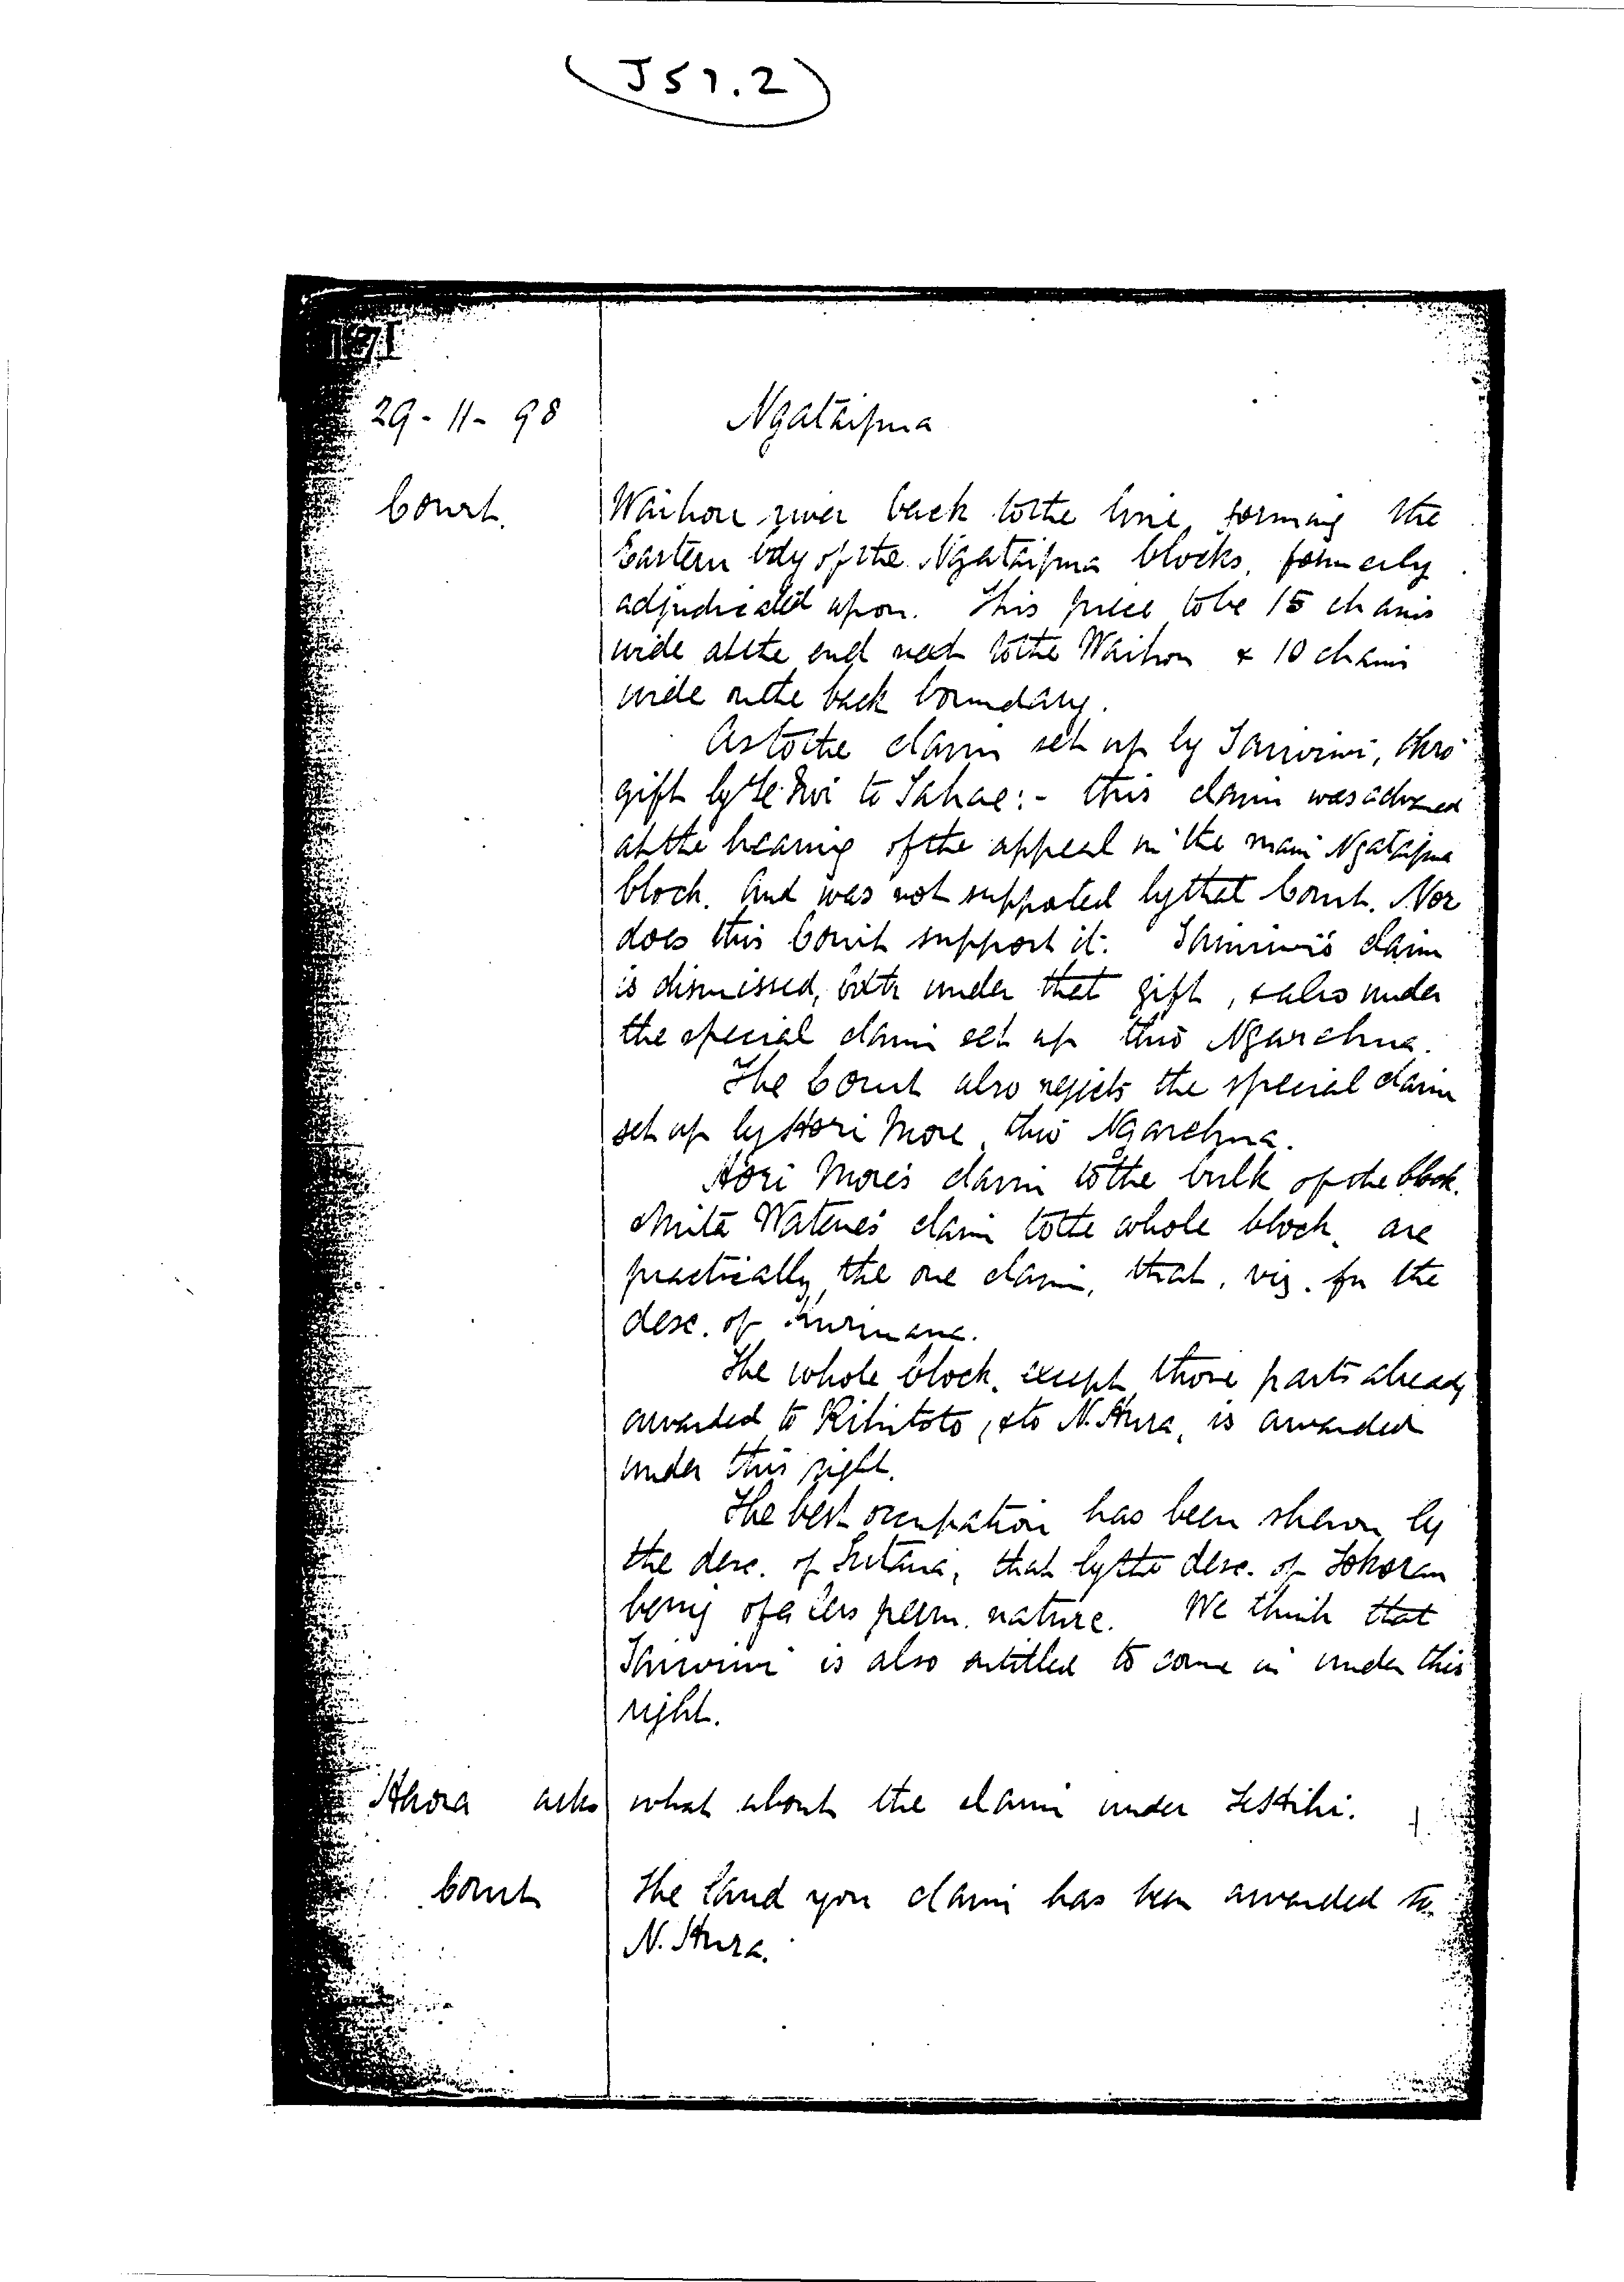 J51.2
171
29-11-98 Ngataipua
Court. Waihou river back to the line, forming the
Eastern bdy of the Ngataipua blocks, formerly
adjudicated upon. This piece to be 15 chains
wide at the end next to the Waihou & 10 chains
wide on the back boundary.
As to the claim set up by Taiwiwi, thro'
gift by Te to Tahae:- this claim was advanced
at the hearing of the appeal in the main Ngataipua
block. And was not supported by that Court. Nor
does this Court support it. Taiwiwi's claim
is dismissed, both under that gift, & also under
the special claim set up thro' Ngarehua.
The Court also rejects the special claim
set up by Hori More, thro' Ngarehua.
Hori More's claim to the bulk of the block.
& Mita Watene's claim to the whole block, are
practically, the one claim, that, viz. for the
desc. of
The whole block, except those parts already
awarded to Kiritoto, & to N. Hura, is awarded
under this right.
The best occupation has been shewn by
the desc. of that by the desc. of
being of a less perm. nature. We think that
Taiwiwi is also entitled to come in under this
right.
Ahora asks what about the claim under Te Hihi.
Court The land you claim has been awarded to
N. Hura.